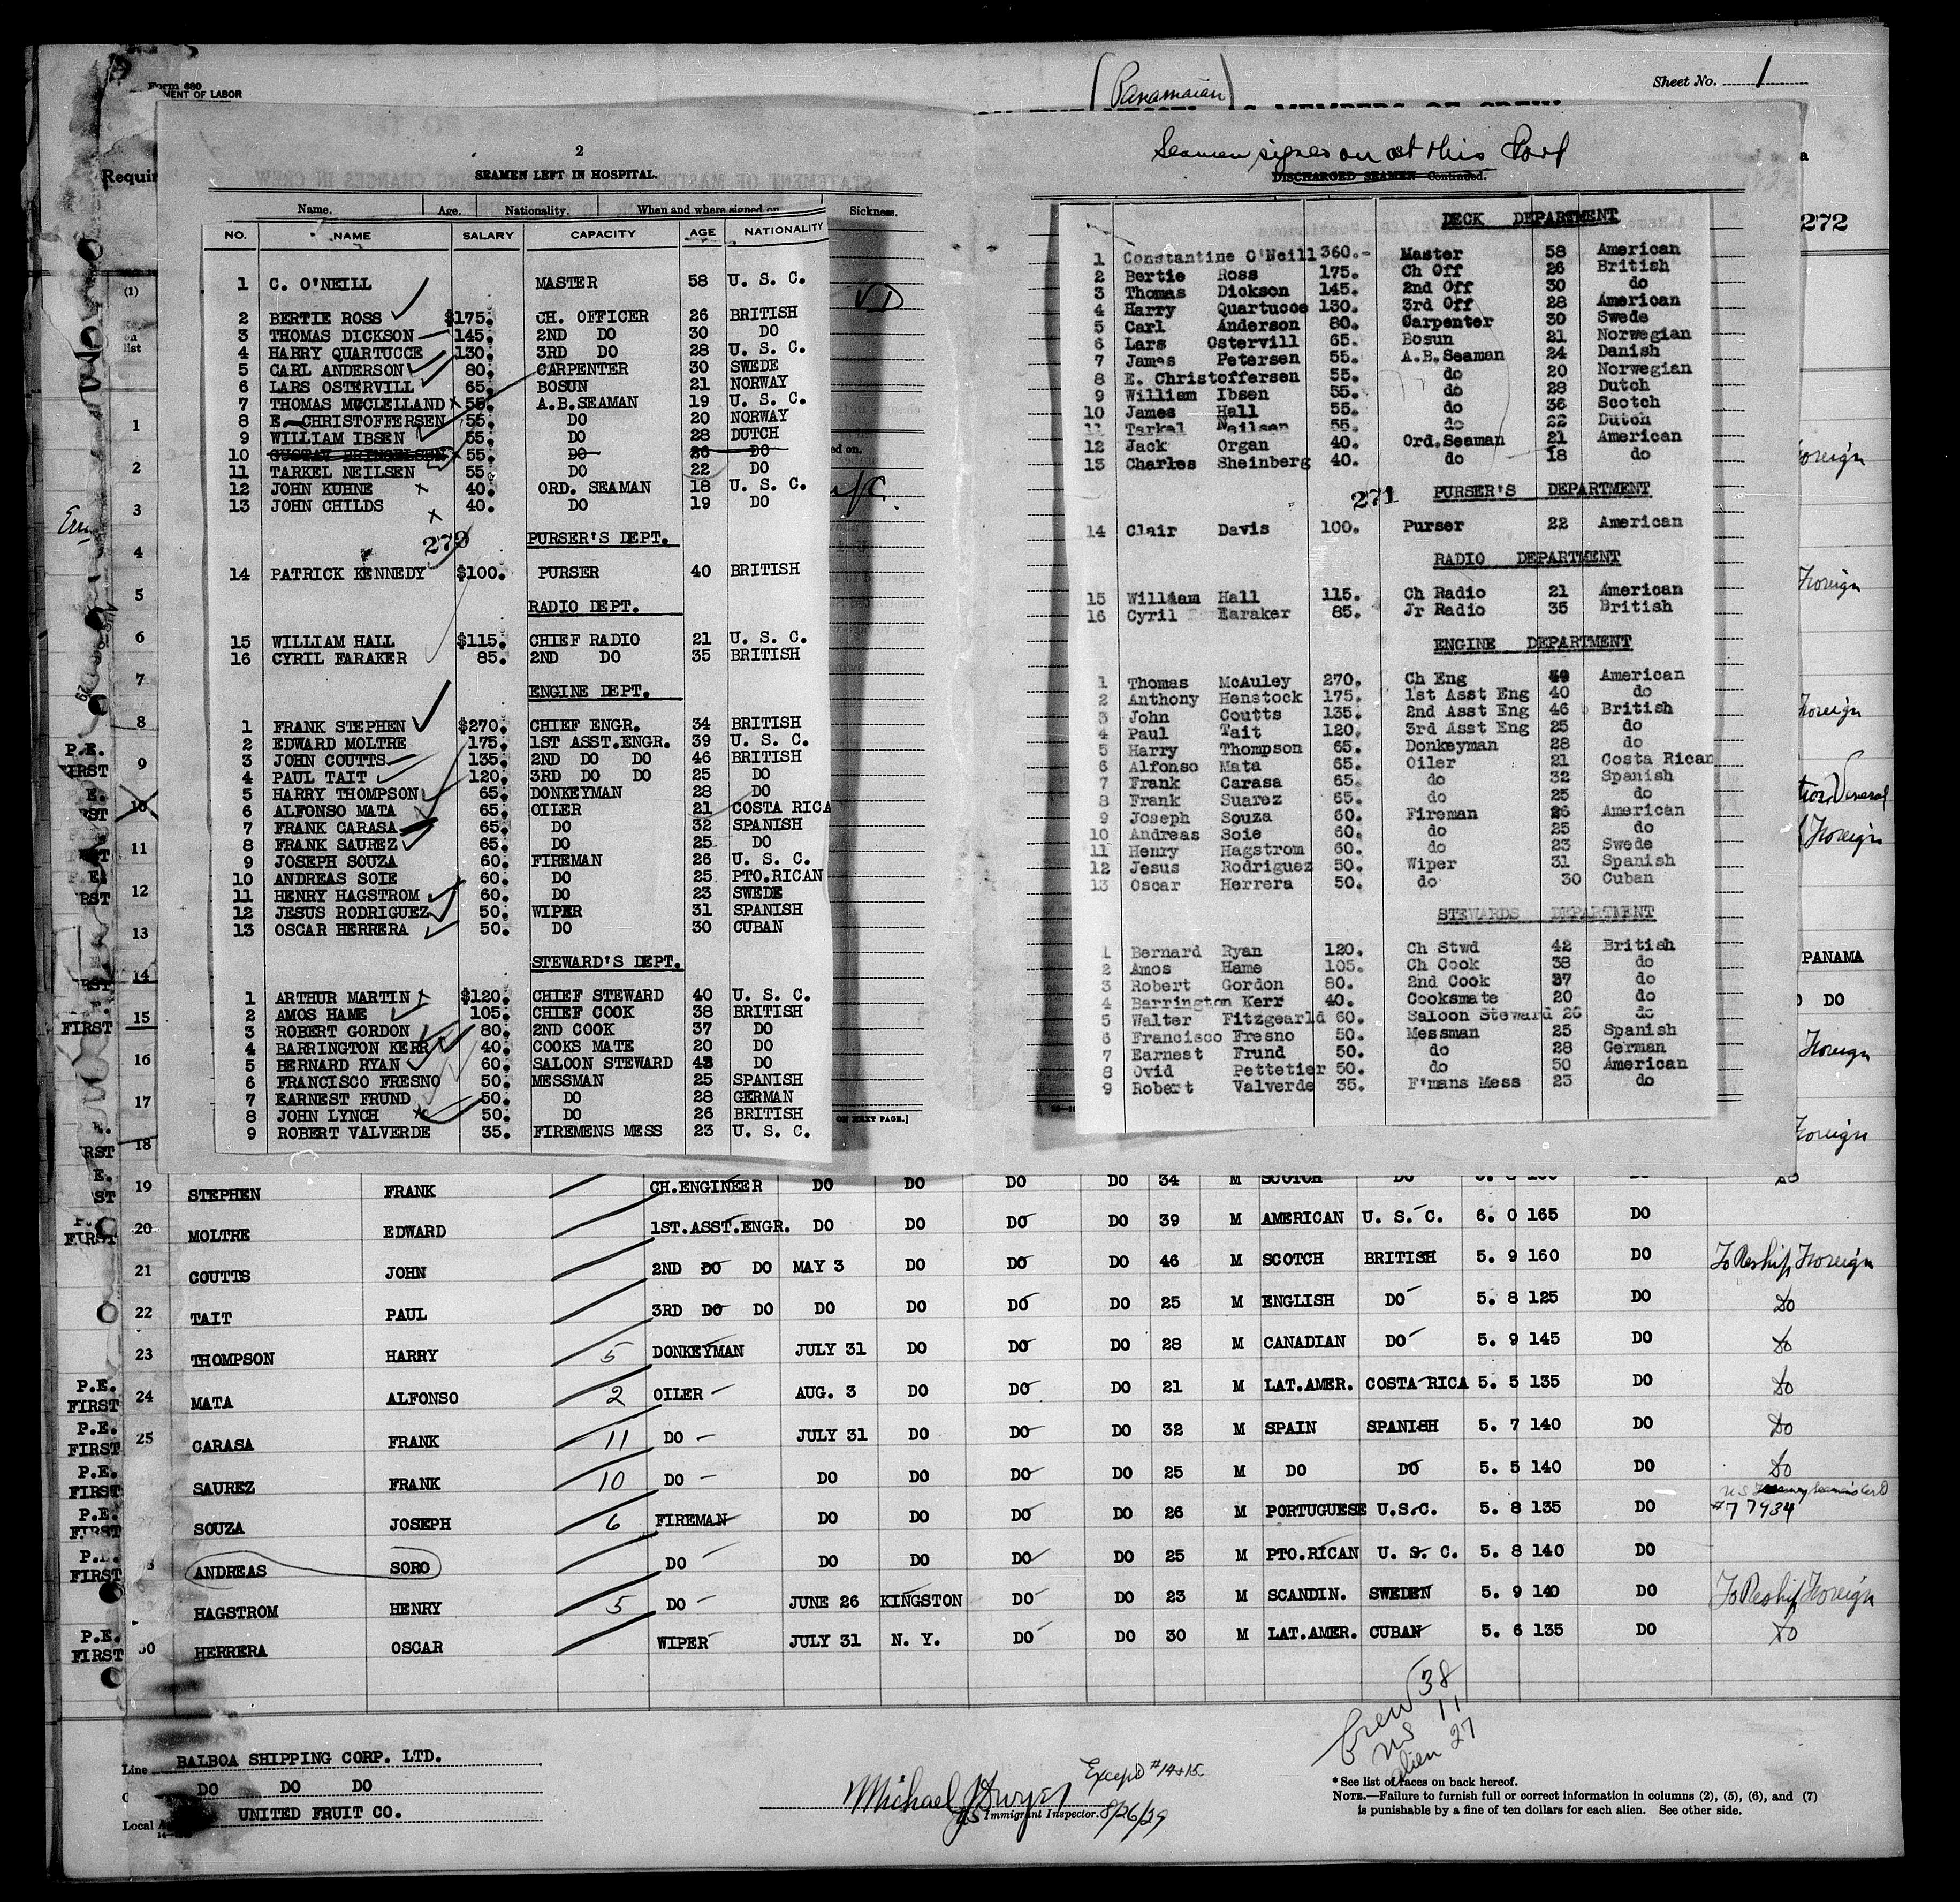 Form 680
MENT OF LABOR
(Panamaian)
Sheet No. 1
MEMBERS OF CREW
Requir
272
2
SEAMEN LEFT IN HOSPITAL.
Name. Age. Nationality. When and where signed on Sickness.
NO. NAME SALARY CAPACITY AGE NATIONALITY
1 C. O'NEILL MASTER 58 U. S. C.
2 BERTIE ROSS $175. CH. OFFICER 26 BRITISH
3 THOMAS DICKSON 145. 2ND DO 30 DO
4 HARRY QUARTUCCE 130. 3RD DO 28 U. S. C.
5 CARL ANDERSON 80. CARPENTER 30 SWEDE
6 LARS OSTERVILL 65. BOSUN 21 NORWAY
7 THOMAS MCCLELLAND x 55. A.B.SEAMAN 19 U. S. C.
8 E. CHRISTOFFERSEN 55. DO 20 NORWAY
9 WILLIAM IBSEN 55. DO 28 DUTCH
10 GUSTAV BRINGELSON 55. DO 26 DO
11 TARKEL NEILSEN 55. DO 22 DO
12 JOHN KUHNE x 40. ORD. SEAMAN 18 U. S. C.
13 JOHN CHILDS x 40. DO 19 DO
270
PURSER'S DEPT.
14 PATRICK KENNEDY $100. PURSER 40 BRITISH
RADIO DEPT.
15 WILLIAM HALL $115. CHIEF RADIO 21 U. S. C.
16 CYRIL FARAKER 85. 2ND DO 35 BRITISH
ENGINE DEPT.
1 FRANK STEPHEN $270. CHIEF ENGR. 34 BRITISH
2 EDWARD MOLTRE 175. 1ST ASST.ENGR. 39 U. S. C.
3 JOHN COUTTS 135. 2ND DO DO 46 BRITISH
4 PAUL TAIT 120. 3RD DO DO 25 DO
5 HARRY THOMPSON 65. DONKEYMAN 28 DO
6 ALFONSO MATA 65. OILER 21 COSTA RICA
7 FRANK CARASA 65. DO 32 SPANISH
8 FRANK SAUREZ 65. DO 25 DO
9 JOSEPH SOUZA 60. FIREMAN 26 U. S. C.
10 ANDREAS SOIE 60. DO 25 PTO.RICAN
11 HENRY HAGSTROM 60. DO 23 SWEDE
12 JESUS RODRIGUEZ 50. WIPER 31 SPANISH
13 OSCAR HERRERA 50. DO 30 CUBAN
STEWARD'S DEPT.
1 ARTHUR MARTIN x $120. CHIEF STEWARD 40 U. S. C.
2 AMOS HAME 105. CHIEF COOK 38 BRITISH
3 ROBERT GORDON 80. 2ND COOK 37 DO
4 BARRINGTON KERR 40. COOKS MATE 20 DO
5 BERNARD RYAN 60. SALOON STEWARD 42 DO
6 FRANCISCO FRESNO 50. MESSMAN 25 SPANISH
7 EARNEST FRUND 50. DO 28 GERMAN
8 JOHN LYNCH x 50. DO 26 BRITISH
9 ROBERT VALVERDE 35. FIREMENS MESS 23 U. S. C.
VD
ON NEXT PAGE.]
Seamen signed on at this Port
DISCHARGED SEAMEN Continued.
DECK DEPARTMENT
1 Constantine O'Neill 360.- Master 58 American
2 Bertie Ross 175. Ch Off 26 British
3 Thomas Dickson 145. 2nd Off 30 do
4 Harry Quartucce 130. 3rd Off 28 American
5 Carl Anderson 80. Carpenter 30 Swede
6 Lars Ostervill 65. Bosun 21 Norwegian
7 James Petersen 55. A.B.Seaman 24 Danish
8 E. Christoffersen 55. do 20 Norwegian
9 William Ibsen 55. do 28 Dutch
10 James Hall 55. do 36 Scotch
11 Tarkal Neilsen 55. do 22 Dutch
12 Jack Organ 40. Ord.Seaman 21 American
13 Charles Sheinberg 40. do 18 do
271
PURSER'S DEPARTMENT
14 Clair Davis 100. Purser 22 American
RADIO DEPARTMENT
15 William Hall 115. Ch Radio 21 American
16 Cyril Earaker 85. Jr Radio 35 British
ENGINE DEPARTMENT
1 Thomas McAuley 270. Ch Eng American
2 Anthony Henstock 175. 1st Asst Eng 40 do
3 John Coutts 135. 2nd Asst Eng 46 British
4 Paul Tait 120. 3rd Asst Eng 25 do
5 Harry Thompson 65. Donkeyman 28 do
6 Alfonso Mata 65. Oiler 21 Costa Rican
7 Frank Carasa 65. do 32 Spanish
8 Frank Suarez 65. do 25 do
9 Joseph Souza 60. Fireman 26 American
10 Andreas Soie 60. do 25 do
11 Henry Hagstrom 60. do 23 Swede
12 Jesus Rodriguez 50. Wiper 31 Spanish
13 Oscar Herrera 50. do 30 Cuban
STEWARDS DEPARTMENT
1 Bernard Ryan 120. Ch Stwd 42 British
2 Amos Hame 105. Ch Cook 38 do
3 Robert Gordon 80. 2nd Cook 37 do
4 Barrington Kerr 40. Cooksmate 20 do
5 Walter Fitzgearld 60. Saloon Steward 26 do
6 Francisco Fresno 50. Messman 25 Spanish
7 Earnest Frund 50. do 28 German
8 Ovid Pettetier 50. do 50 American
9 Robert Valverde 35. F'mans Mess 23 do
(1)
1
2
3
4
5
6
7
8
P.E. FIRST 9
10
11
12
13
14
FIRST 15
16
17
18
Foreign
Foreign
Foreign
Foreign
PANAMA
DO
Foreign
Foreign
19 STEPHEN FRANK CH.ENGINEER DO DO DO DO 34 M SCOTCH DO
20 MOLTRE EDWARD 1ST.ASST.ENGR. DO DO DO DO 39 M AMERICAN U. S. C. 6. 0 165 DO
21 COUTTS JOHN 2ND DO DO MAY 3 DO DO DO 46 M SCOTCH BRITISH 5. 9 160 DO To Reship Foreign
22 TAIT PAUL 3RD DO DO DO DO DO DO 25 M ENGLISH DO 5. 8 125 DO Do
23 THOMPSON HARRY 5 DONKEYMAN JULY 31 DO DO DO 28 M CANADIAN DO 5. 9 145 DO Do
P.E. FIRST 24 MATA ALFONSO 2 OILER AUG. 3 DO DO DO 21 M LAT.AMER. COSTA RICA 5. 5 135 DO Do
P.E. FIRST 25 CARASA FRANK 11 DO JULY 31 DO DO DO 32 M SPAIN SPANISH 5. 7 140 DO Do
P.E. FIRST SAUREZ FRANK 10 DO DO DO DO DO 25 M DO DO 5. 5 140 DO Do
P.E. FIRST SOUZA JOSEPH 6 FIREMAN DO DO DO DO 26 M PORTUGUESE U.S.C. 5. 8 135 DO #77934
FIRST ANDREAS SORO DO DO DO DO DO 25 M PTO.RICAN U. S. C. 5. 8 140 DO
HAGSTROM HENRY 5 DO JUNE 26 KINGSTON DO DO 23 M SCANDIN. SWEDEN 5. 9 140 DO To Reship Foreign
P.E. FIRST 30 HERRERA OSCAR WIPER JULY 31 N. Y. DO DO 30 M LAT.AMER. CUBAN 5. 6 135 DO Do
Crew 38
US 11
alien 27
Line BALBOA SHIPPING CORP. LTD.
DO DO DO
Local UNITED FRUIT CO.
Except #14+15
Michael J Dwyer
US Immigrant Inspector. 8/26/29
*See list of races on back hereof.
NOTE.—Failure to furnish full or correct information in columns (2), (5), (6), and (7)
is punishable by a fine of ten dollars for each alien. See other side.